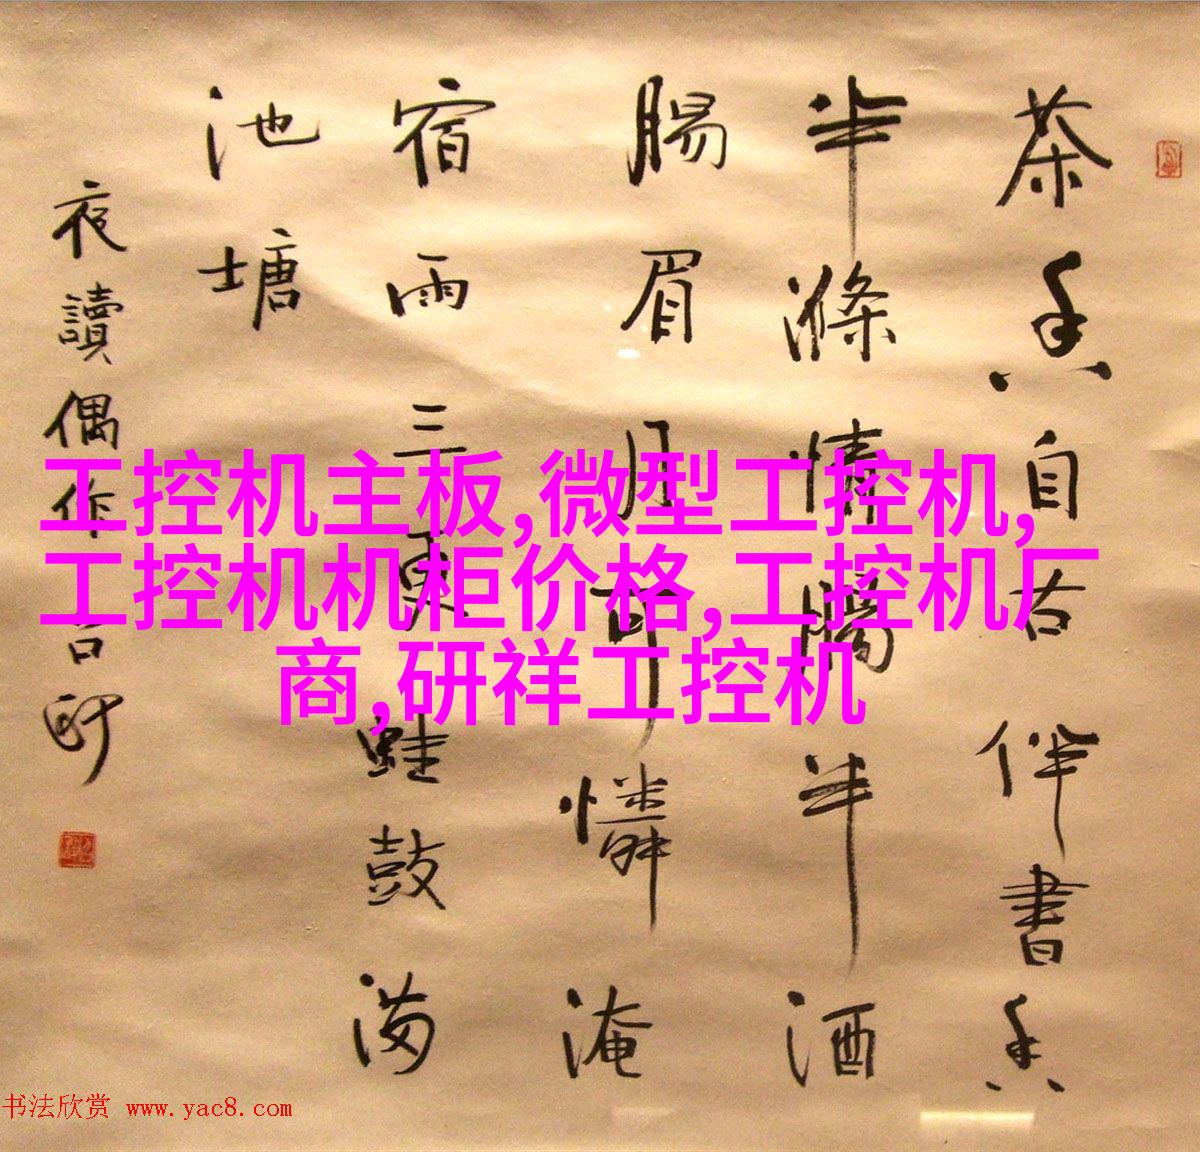 茶香自古伴書香
半滌情膓半酒
腸眉月可憐淹
宿雨三更蛙鼓滿
池塘
夜讀偶作
工控机主板,微型工控机,
工控机机柜价格,工控机厂
商,研祥工控机
书法欣赏 www.yac8.com